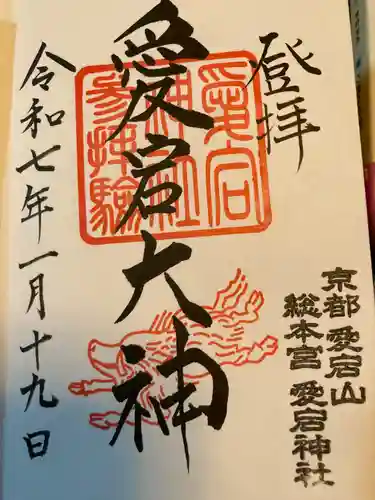 登拝
愛宕大神
愛宕
神社
参拝験
令和七年一月十九日
京都 愛宕山
総本宮 愛宕神社